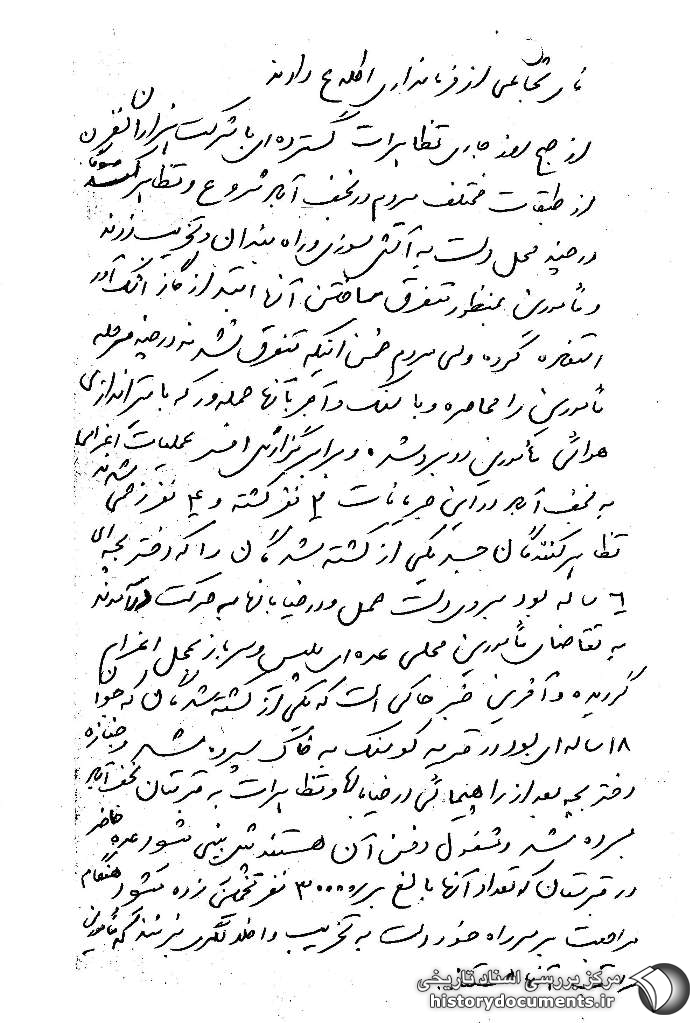 از فرمانداری اطلاع دادند
از صبح روز جاری تظاهرات گسترده‌ای با شرکت هزاران نفر
از طبقات مختلف مردم در نجف آباد شروع و تظاهرکنندگان
در چند محل دست به آتش سوزی و راه بندان و تخریب زدند
و مأمورین بمنظور متفرق ساختن آنها ابتدا از گاز اشک آور
استفاده کرده ولی مردم ضمن اینکه متفرق نشدند در چند مرحله
مأمورین را محاصره و با سنگ و آجر بآنها حمله ور که با تیراندازی
هوائی مأمورین روبرو شده و برابر گزارش افسر عملیات اعزامی
به نجف آباد در این جریانات ۲ نفر کشته و ۴ نفر زخمی شدند
تظاهرکنندگان جسد یکی از کشته شدگان را که دختر بچه‌ای
۶ ساله بود بروی دست حمل و در خیابانها به حرکت درآمدند
به تقاضای مأمورین محلی عده‌ای پلیس و سرباز بمحل اعزام
گردیده و آخرین خبر حاکی است که یکی از کشته شدگان که جوان
۱۸ ساله‌ای بود در قریه کوشک به خاک سپرده شد و جنازه
دختر بچه بعد از راهپیمائی در خیابانها و تظاهرات به قبرستان نجف آباد
برده شد و مشغول دفن آن هستند پیش بینی میشود عده حاضر
در قبرستان که تعداد آنها بالغ بر ۳۰۰۰۰ نفر تخمین زده میشود هنگام
مراجعت بر سر راه خود دست به تخریب و اخلالگری بزنند که مأمورین
مرکز بررسی اسناد تاریخی
historydocuments.ir